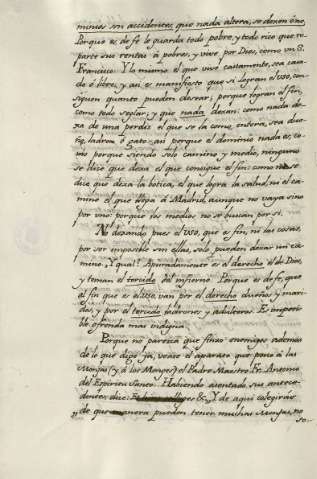 minios sin accidentes; que nada altera, se dexen ó no.
Porque es de fe lo guarda todo pobre, y todo rico que re
parte sus rentas á pobres, y vive por Dios, como un S.
Francisco. Y lo mismo el que vive castamente, sea casa
do ó libre, y asi es manifiesto que si logran el uso, con
siguen quanto pueden desear; porque logran el fin,
como todo seglar, y que nada dexan: como nada de
xa de una perdiz el que se la come entera, sea due
ño, ladron, ó gato; asi porque el dominio nada es, co
mo porque siendo solo camino y medio, ninguno
se dice que dexa el que consigue el fin: como no se
dice que dexa la botica, el que logra la salud, ni el ca
mino el que llega á Madrid, aunque no vaya sino
por uno: porque los medios no se buscan por sí.
No dexando pues el uso, que es fin, ni las cosas,
por ser imposible sin ellas, solo pueden dexar un ca
mino. ¿Y qual? Aparradamente es el derecho el de Dios,
y toman el torcido del infierno. Porque es de fe, que
al fin que es el uso, van por el derecho dueños y mari
dos, y por el torcido ladrones y adulteros. Es imposi
ble ofrenda mas indigna.
Porque no parezca que finxo enemigos, ademas
de lo que dixo ya, vease el aparato que pone á las
Monjas (y á los Monges) el Padre Maestro Fr. Antonio
del Espiritu Santo. Habiendo sentado sus antece
dentes, dice: &. Y de aqui colegirás
de que manera pueden tener muchas Monjas, no
so-